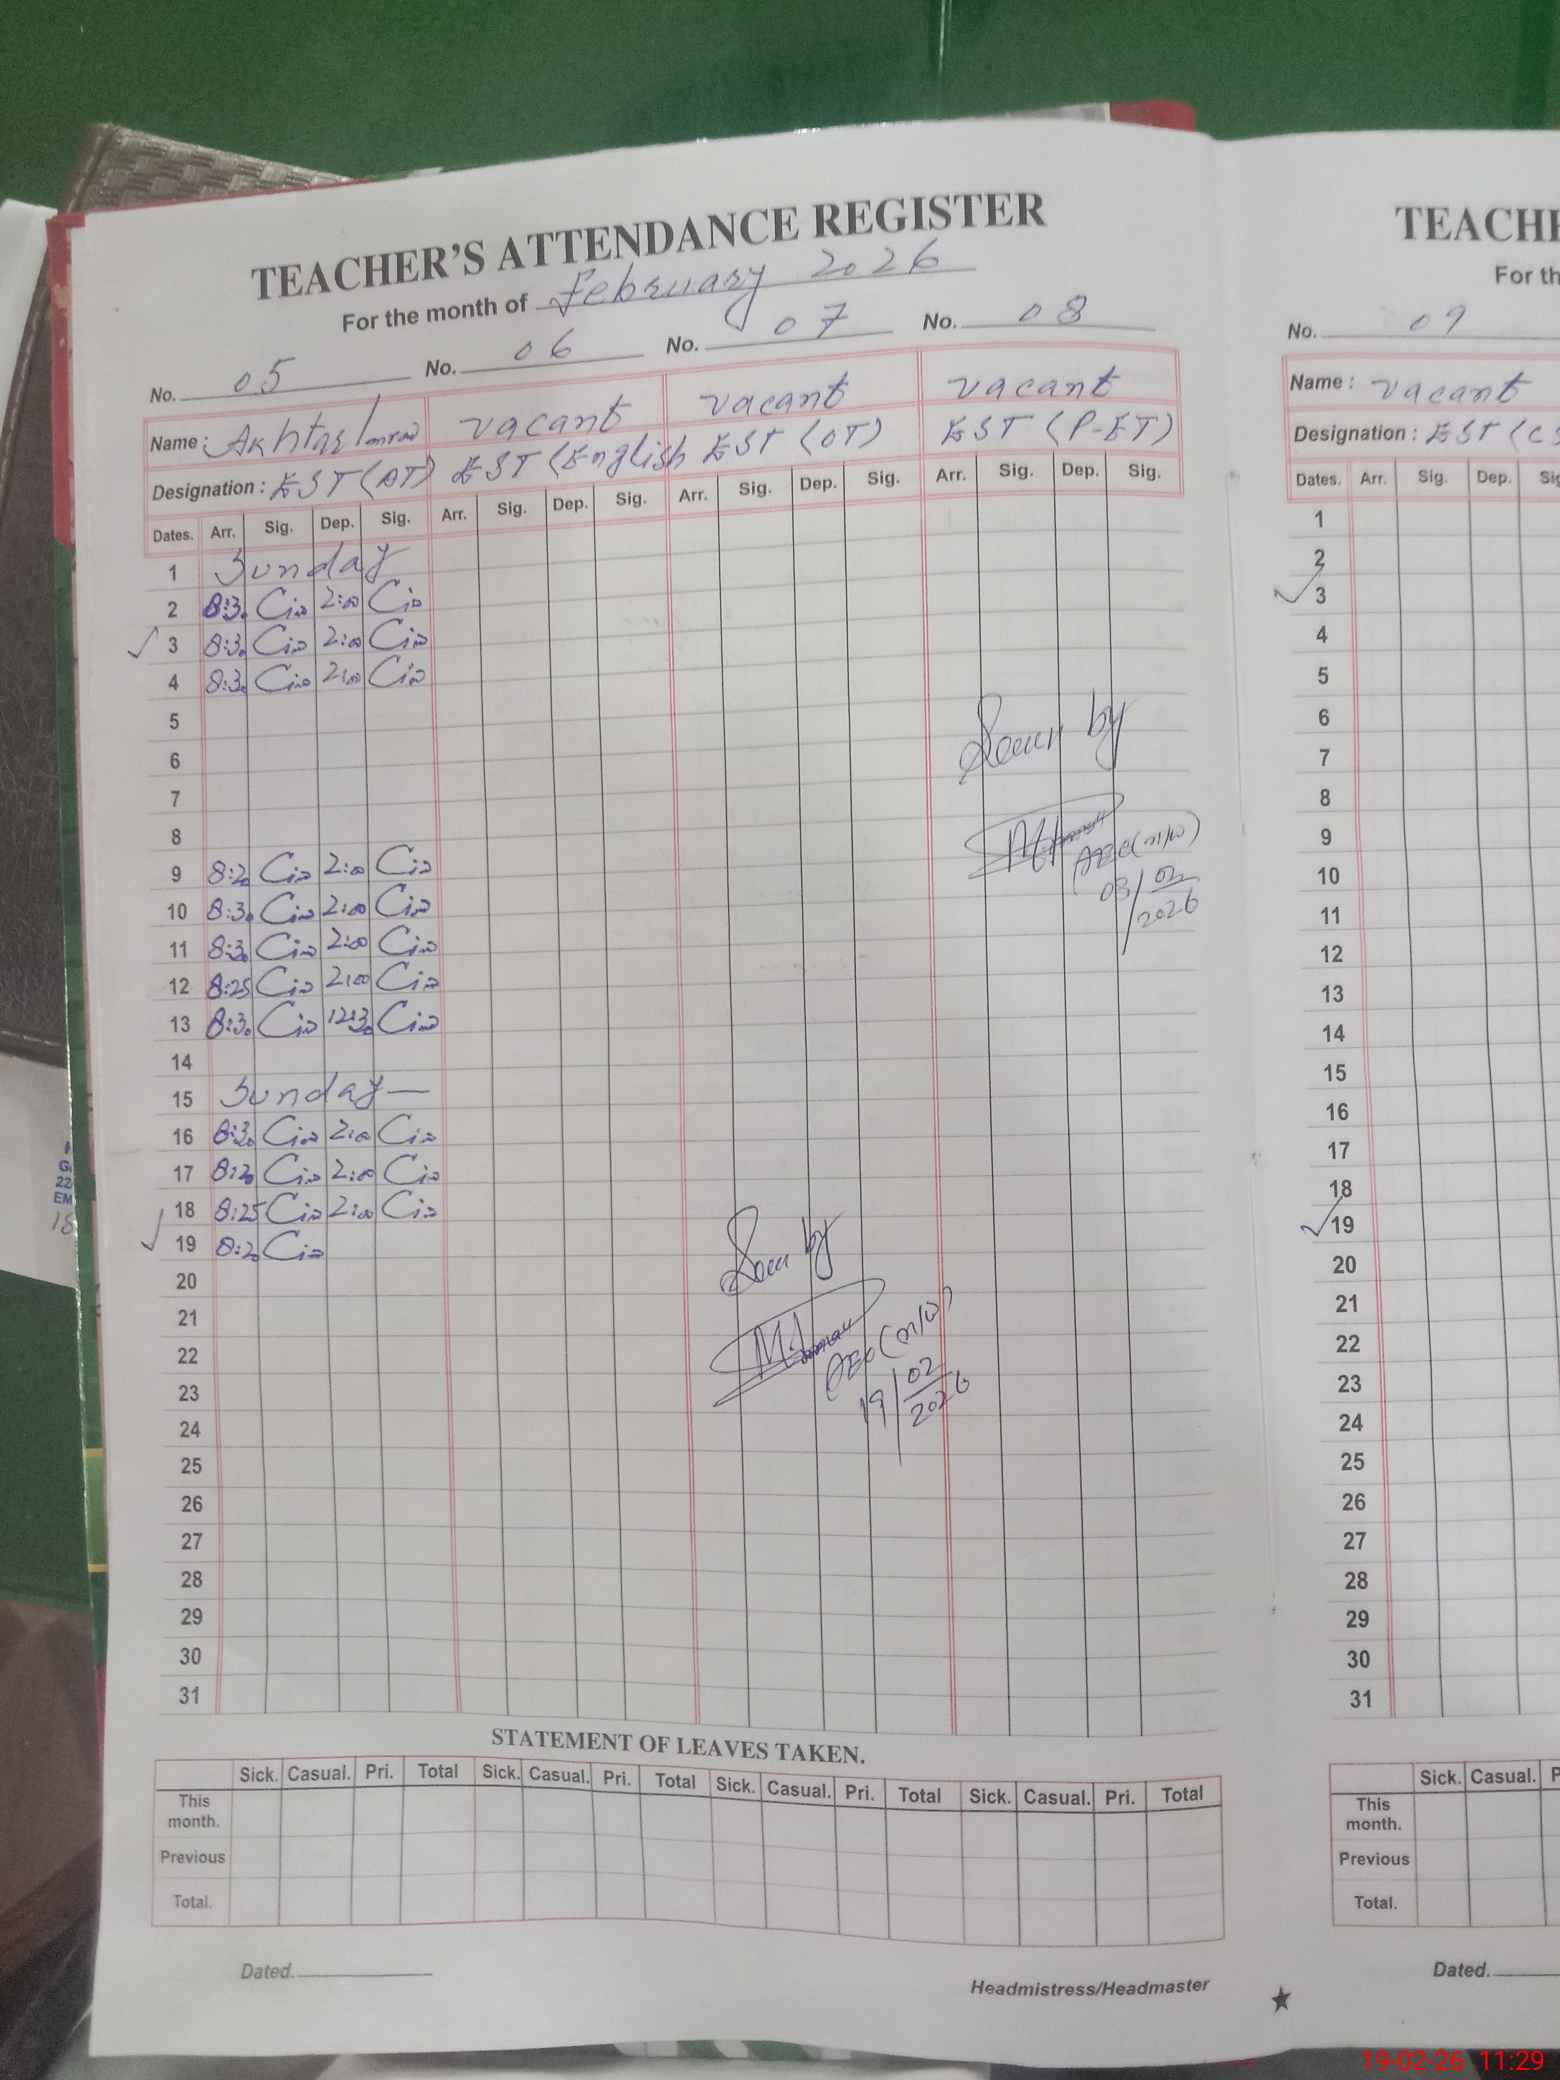 TEACHER'S ATTENDANCE REGISTER
For the month of February 2026
No. 05 No. 06 No. 07 No. 08
Name: Akhtar vacant vacant vacant
Designation: EST (AT) EST (English EST (OT) EST (P-ET)
Dates. Arr. Sig. Dep. Sig. Arr. Sig. Dep. Sig. Arr. Sig. Dep. Sig. Arr. Sig. Dep. Sig.
1 Sunday
2 8:30 2:00
3 8:30 2:00
4 8:30 2:00
5
6
7
8
9 8:20 2:00
10 8:30 2:00
11 8:30 2:00
12 8:25 2:00
13 8:30 12:30
14
15 Sunday
16 8:30 2:00
17 8:20 2:00
18 8:25 2:00
19 8:20
20
21
22
23
24
25
26
27
28
29
30
31
Seen by
AEO (M/W)
03/02/2026
Seen by
AEO (M/W)
19/02/2026
STATEMENT OF LEAVES TAKEN.
Sick. Casual. Pri. Total Sick. Casual. Pri. Total Sick. Casual. Pri. Total Sick. Casual. Pri. Total
This month.
Previous
Total.
Dated.
Headmistress/Headmaster
TEACHE
For th
No. 09
Name: vacant
Designation: EST (CS
Dates. Arr. Sig. Dep. Sig
1
2
3
4
5
6
7
8
9
10
11
12
13
14
15
16
17
18
19
20
21
22
23
24
25
26
27
28
29
30
31
Sick. Casual. P
This month.
Previous
Total.
Dated.
22
EM
18
19-02-26 11:29